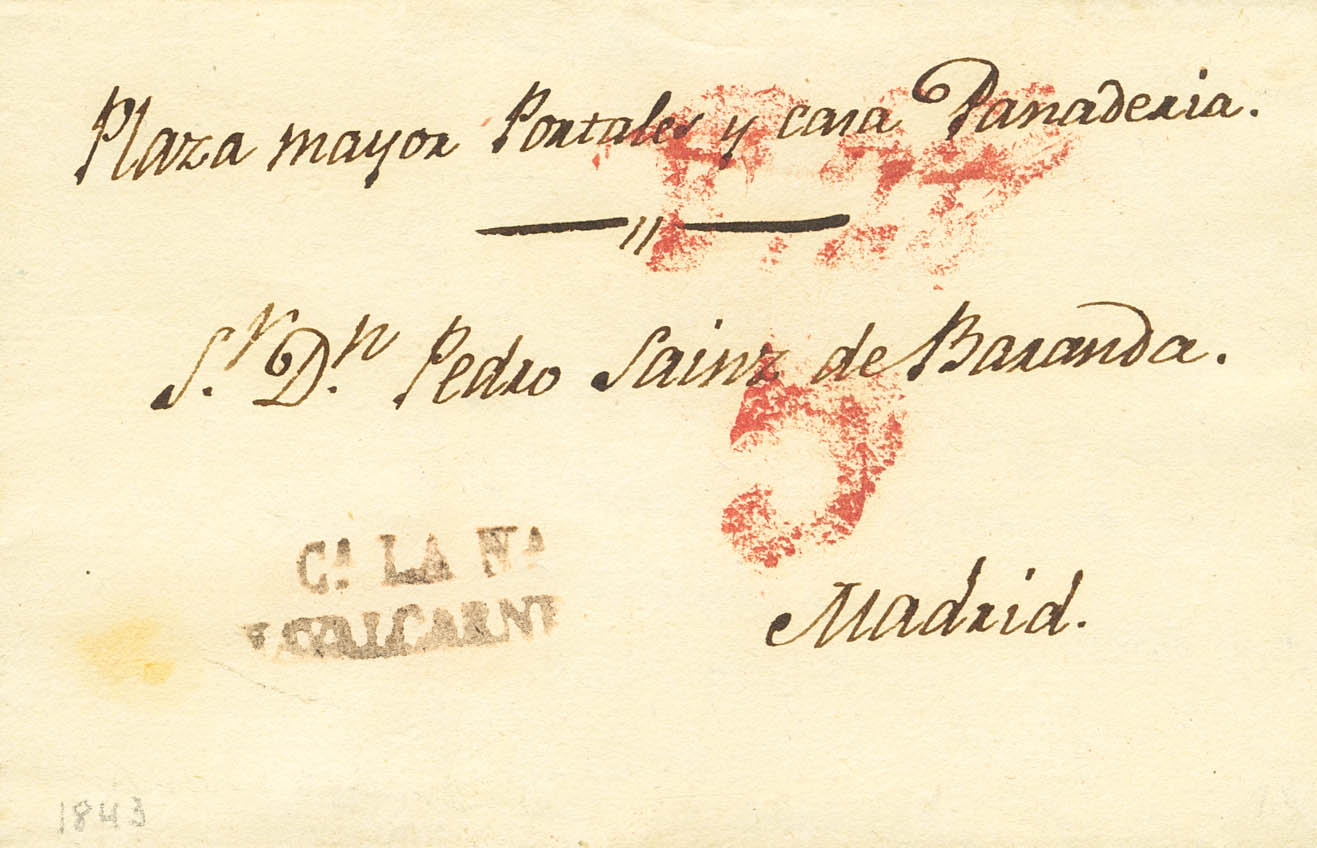 Plaza mayor Portales y casa Panaderia.
Sr. Dn. Pedro Sainz de Baranda.
5
Cª LA Nª
Madrid.
1843